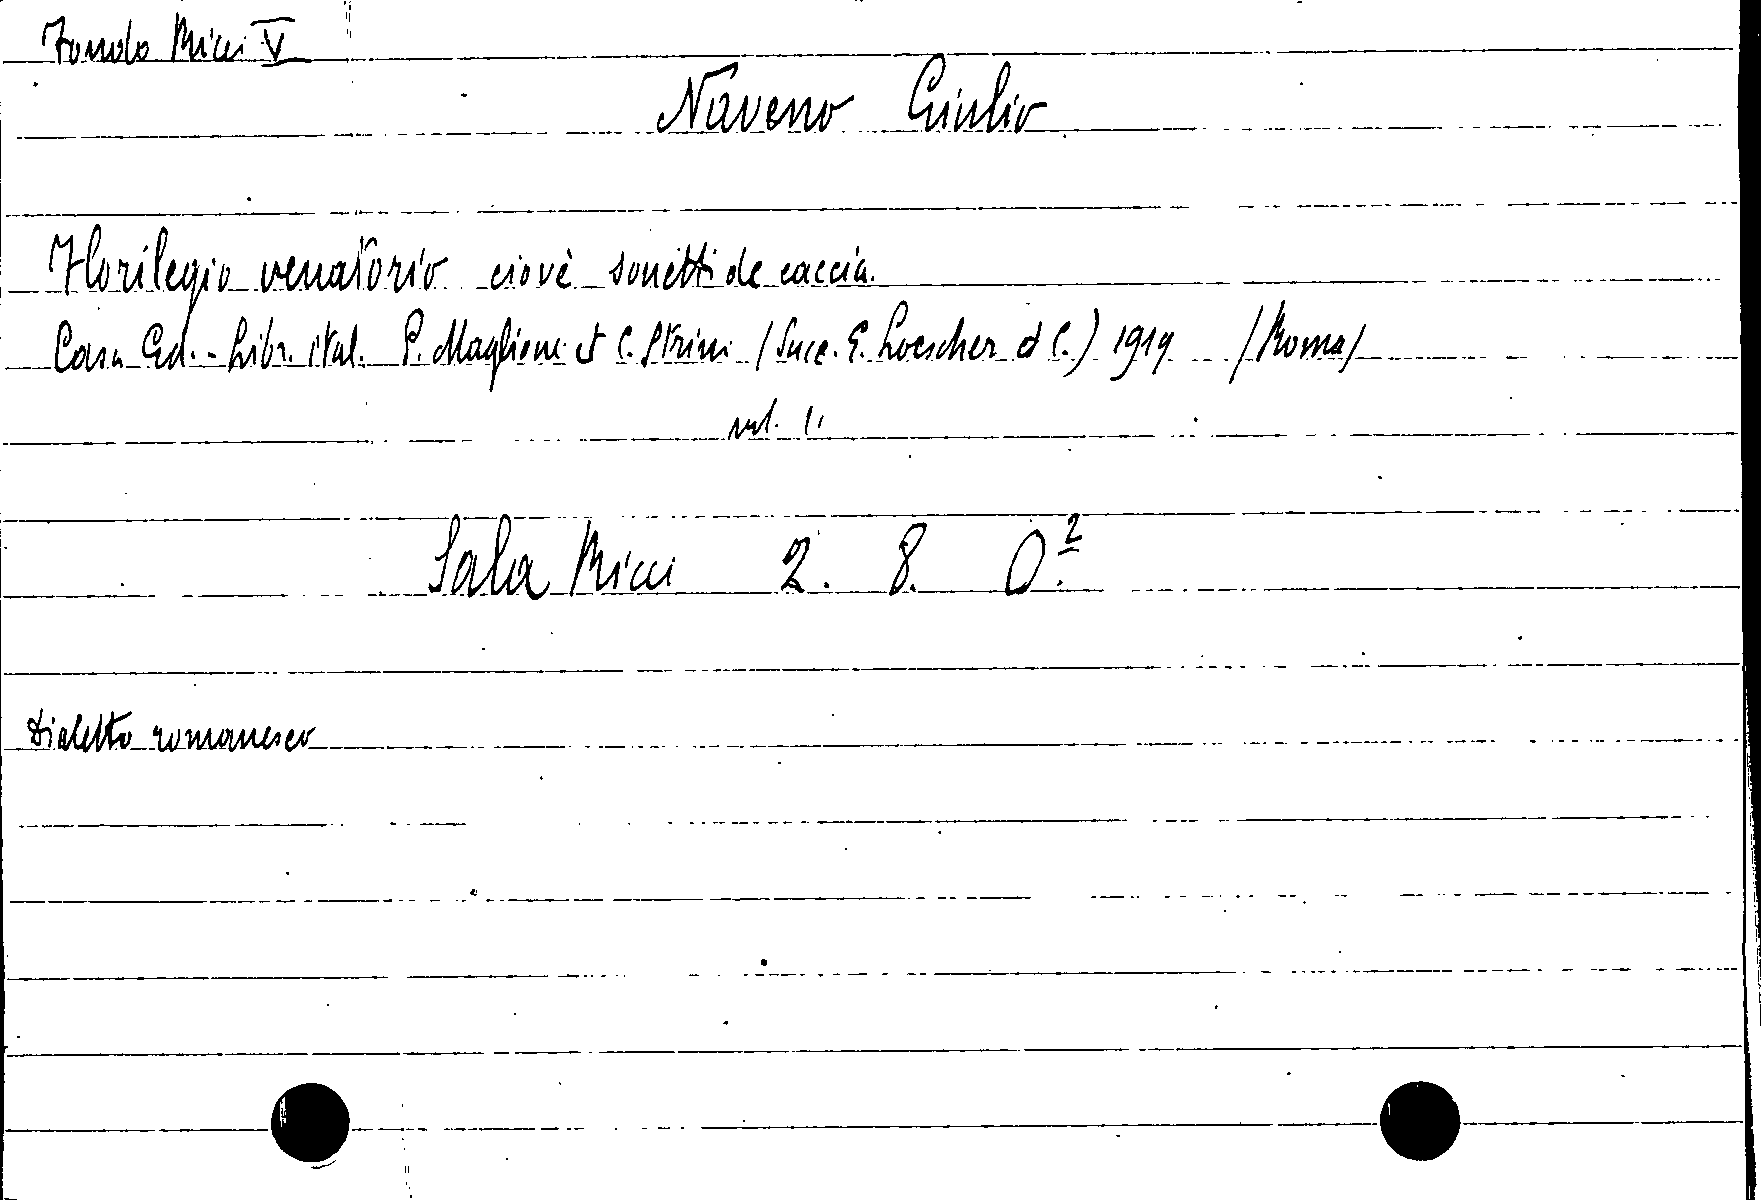 Fondo Ricci V
Naveno Giulio
Florilegio venatorio ciovè sonetti de caccia.
Casa Ed. - Libr. ital. P. Maglione et C. Strini (Succ. E. Loescher et C.) 1919 /Roma/
vol. 1.
Sala Ricci 2. 8. O.²
Dialetto romanesco